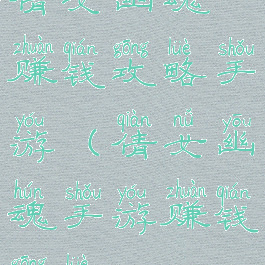 zhuàn qián gōng lüè shǒu
赚钱攻略手
yóu qiàn nǚ yōu
游(倩女幽
hún shǒu yóu zhuàn qián
魂手游赚钱
gōng lüè